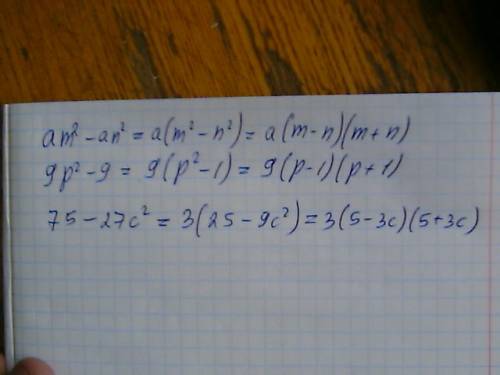 am² - an² = a(m² - n²) = a(m-n)(m+n)
9p² - 9 = 9(p² - 1) = 9(p-1)(p+1)
75 - 27c² = 3(25 - 9c²) = 3(5-3c)(5+3c)